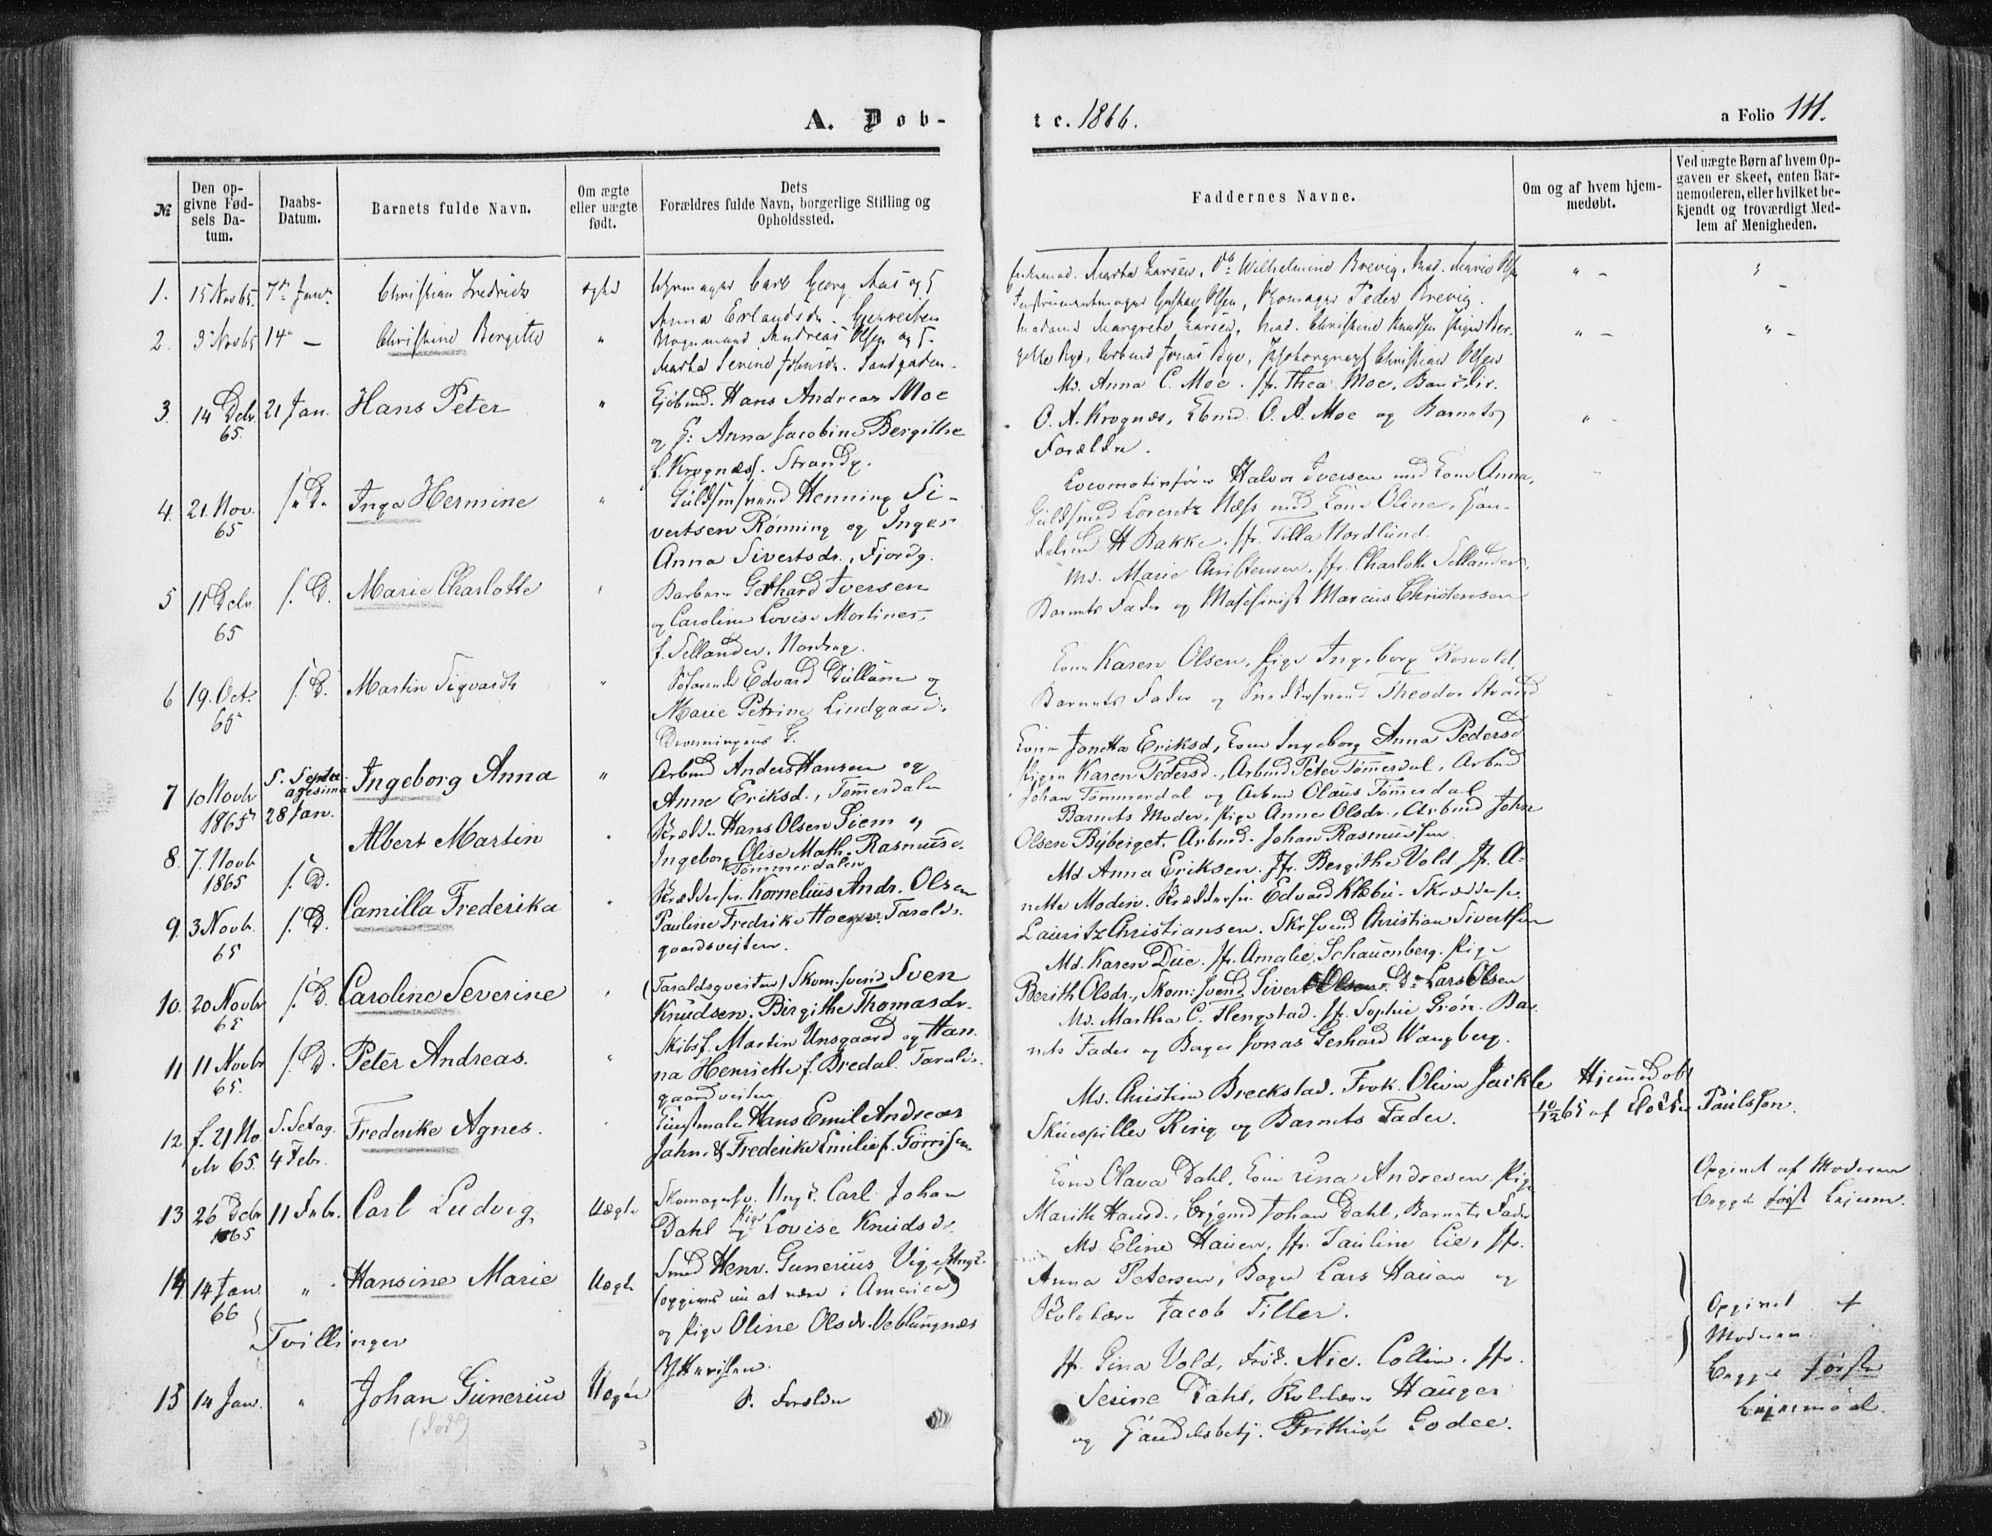 A. Døb-
te. 1866.
a Folio 111.
№
Den op-
givne Fød-
sels Da-
tum.
Daabs-
Datum.
Barnets fulde Navn.
Om ægte
eller uægte
født.
Dets
Forældres fulde Navn, borgerlige Stilling og
Opholdssted.
Faddernes Navne.
Om og af hvem hjem-
medøbt.
Ved uægte Børn af hvem Op-
gaven er skeet, enten Bar-
nemoderen, eller hvilket be-
kjendt og troværdigt Med-
lem af Menigheden.
1. 15 Nov 65. 7de Janr. Christian Fredrick ægte
Carl Georg Aas og
Anna Erlandsdr.
Marta Larsen, Do Wilhelmine Brevig, Mad. Marie Olsen
Instrumentmager Gustav Olsen, Peder Brevig.
2. 9 Nov 65 14 — Christine Bergitte "
Andreas Olsen og
Marta Serine Johnsdr.
Madame Margrete Larsen, Mad. Christine Knudsen Pige Ber-
gitte Rye, Arbmd Jonas Rye, Photograf Christian Olsen
3. 14 Debr. 65. 21 Jan. Hans Peter "
Hans Andreas Moe
og H: Anna Jacobine Bergitthe
f. Krognæss. Strandg.
Md. Anna C. Moe. Jfr. Thea Moe,
O. A. Krognæs, O. A. Moe og Barnets
Forældre.
4. 21. Nov. 65 s. D. Inga Hermine "
Guldsmsvend Henning Si-
vertsen Rønning og Inger
Anna Sivertsdr., Fjordg.
Locomotivfører Halvor Iversen med Kone Anna,
Guldsmed Lorentz Næss med Kone Oline, Han-
H Bakke. Jfr. Tilla Nordlund.
5 11 Debr. 65 s. D. Marie Charlotte
Gerhard Iversen
og Caroline Lovise Mortine
f. Sellander, Nordreg.
Md. Marie Christensen, Jfr. Charlotte Sellander,
Barnets Fader og Maskinist Marcus Christensen
6 19. Oct. 65 s. D. Martin Sigvardt "
Edvard Dullum og
Marie Petrine Lindgaard,
Dronningens G.
Kone Karen Olsen, Pige Ingeborg
Barnets Fader og Snedkersvend Theodor Strand
7 10 Novbr 1865 S. Septu-
agesima
28 Jan. Ingeborg Anna "
Arbmd Anders Hansen og
Anne Eriksd., Tømmerdalen
Kone Jonetta Eriksd, Kone Ingeborg Anna Pedersd
Pigen Karen Pedersd., Arbmd Peter Tømmerdal, Arbmd
Johan Tømmerdal og Arbmd Olaus Tømmerdal
8. 7. Novb 1865 s. D. Albert Martin
Hans Olsen Siem og
Ingeborg Olise Math. Rasmusd.
Tømmerdalen
Barnets Moder, Pige Anne Olsdr., Arbmd John
Olsen Byberget, Arbmd. Johan Rasmussen
9. 3 Novbr. 65 s. D. Camilla Frederika
Kornelius Andr. Olsen
Pauline Fredrike Taralds-
gaardsveiten.
Md. Anna Eriksen. Jfr. Bergithe Vold, Jfr. A-
nette Modin. Edvard Klæbu. Skræddersv.
Lauritz Christiansen. Christian Sivertsen
10. 20 Novbr 65 s. D. Caroline Severine
(Taraldsgveiten) Skom.svend Sven
Knudsen. Birgithe Thomasdr.
Md. Karen Due. Jfr. Amalie Schauenberg. Pige
Berith Olsdr., Skom.svend Sivert Olsen Do Lars Olsen
11 11 Novbr 65. s. D. Peter Andreas. "
Skibsf. Martin Unsgaard og Han
na Henriette f. Bredal. Taralds-
gaardveiten
Md. Martha C. Hengstad. Jfr. Sophie Grøn. Bar
nets Fader og Bager Jonas Gerhard Wangberg.
12 f. 21 No
vbr 65. S. Sexag.
4 Febr. Frederike Agnes.
Hans Emil Andreas
Jahn & Frederike Emilie f. Görrissen
Md. Christine Breckstad. Frøk. Olivia Jaikle
Skuespiller Ring og Barnets Fader.
Hjemmedøbt
10/12 65 af Paulssen.
13 26 Debr 1865 11 Febr. Carl Ludvig Uægte
Skomagersv. Ungk. Carl Johan
Dahl og Pige Lovise Knudsdr.
Kone Olava Dahl, Kone Lina Andresen Pige
Marith Hansd., Johan Dahl, Barnets Fader
Opgivet af Moderen
begges første Leierm.
14 14 Jan. 66 " Hansine Marie Uægte
Smed Henr. Gunerius Vig, Ungk.
(opgives nu at være i America)
og Pige Oline Olsdr. Veblungnæs
Md. Eline Hauen, Jfr. Pauline Lie, Jfr.
Anna Petersen, Bager Lars Hauan og
Jacob Tiller.
Opgivet af
Moderen
begges første
Leiermaal.
Tvillinger
15 14 Jan. " Johan Gunerius Uægte
S. Forældre
Jfr. Gina Vold, Frøk. Nic. Collin. Jfr.
Serine Dahl, Hauger
og Handelsbetj. Frithiof Godee.